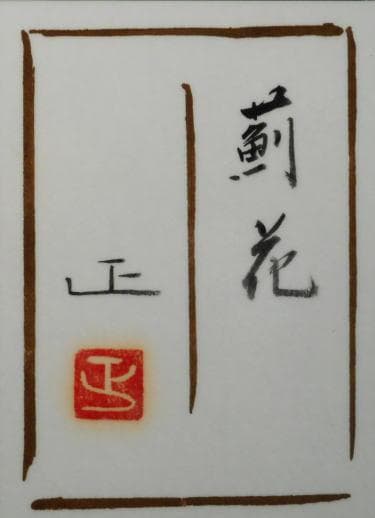 薊花
正
正